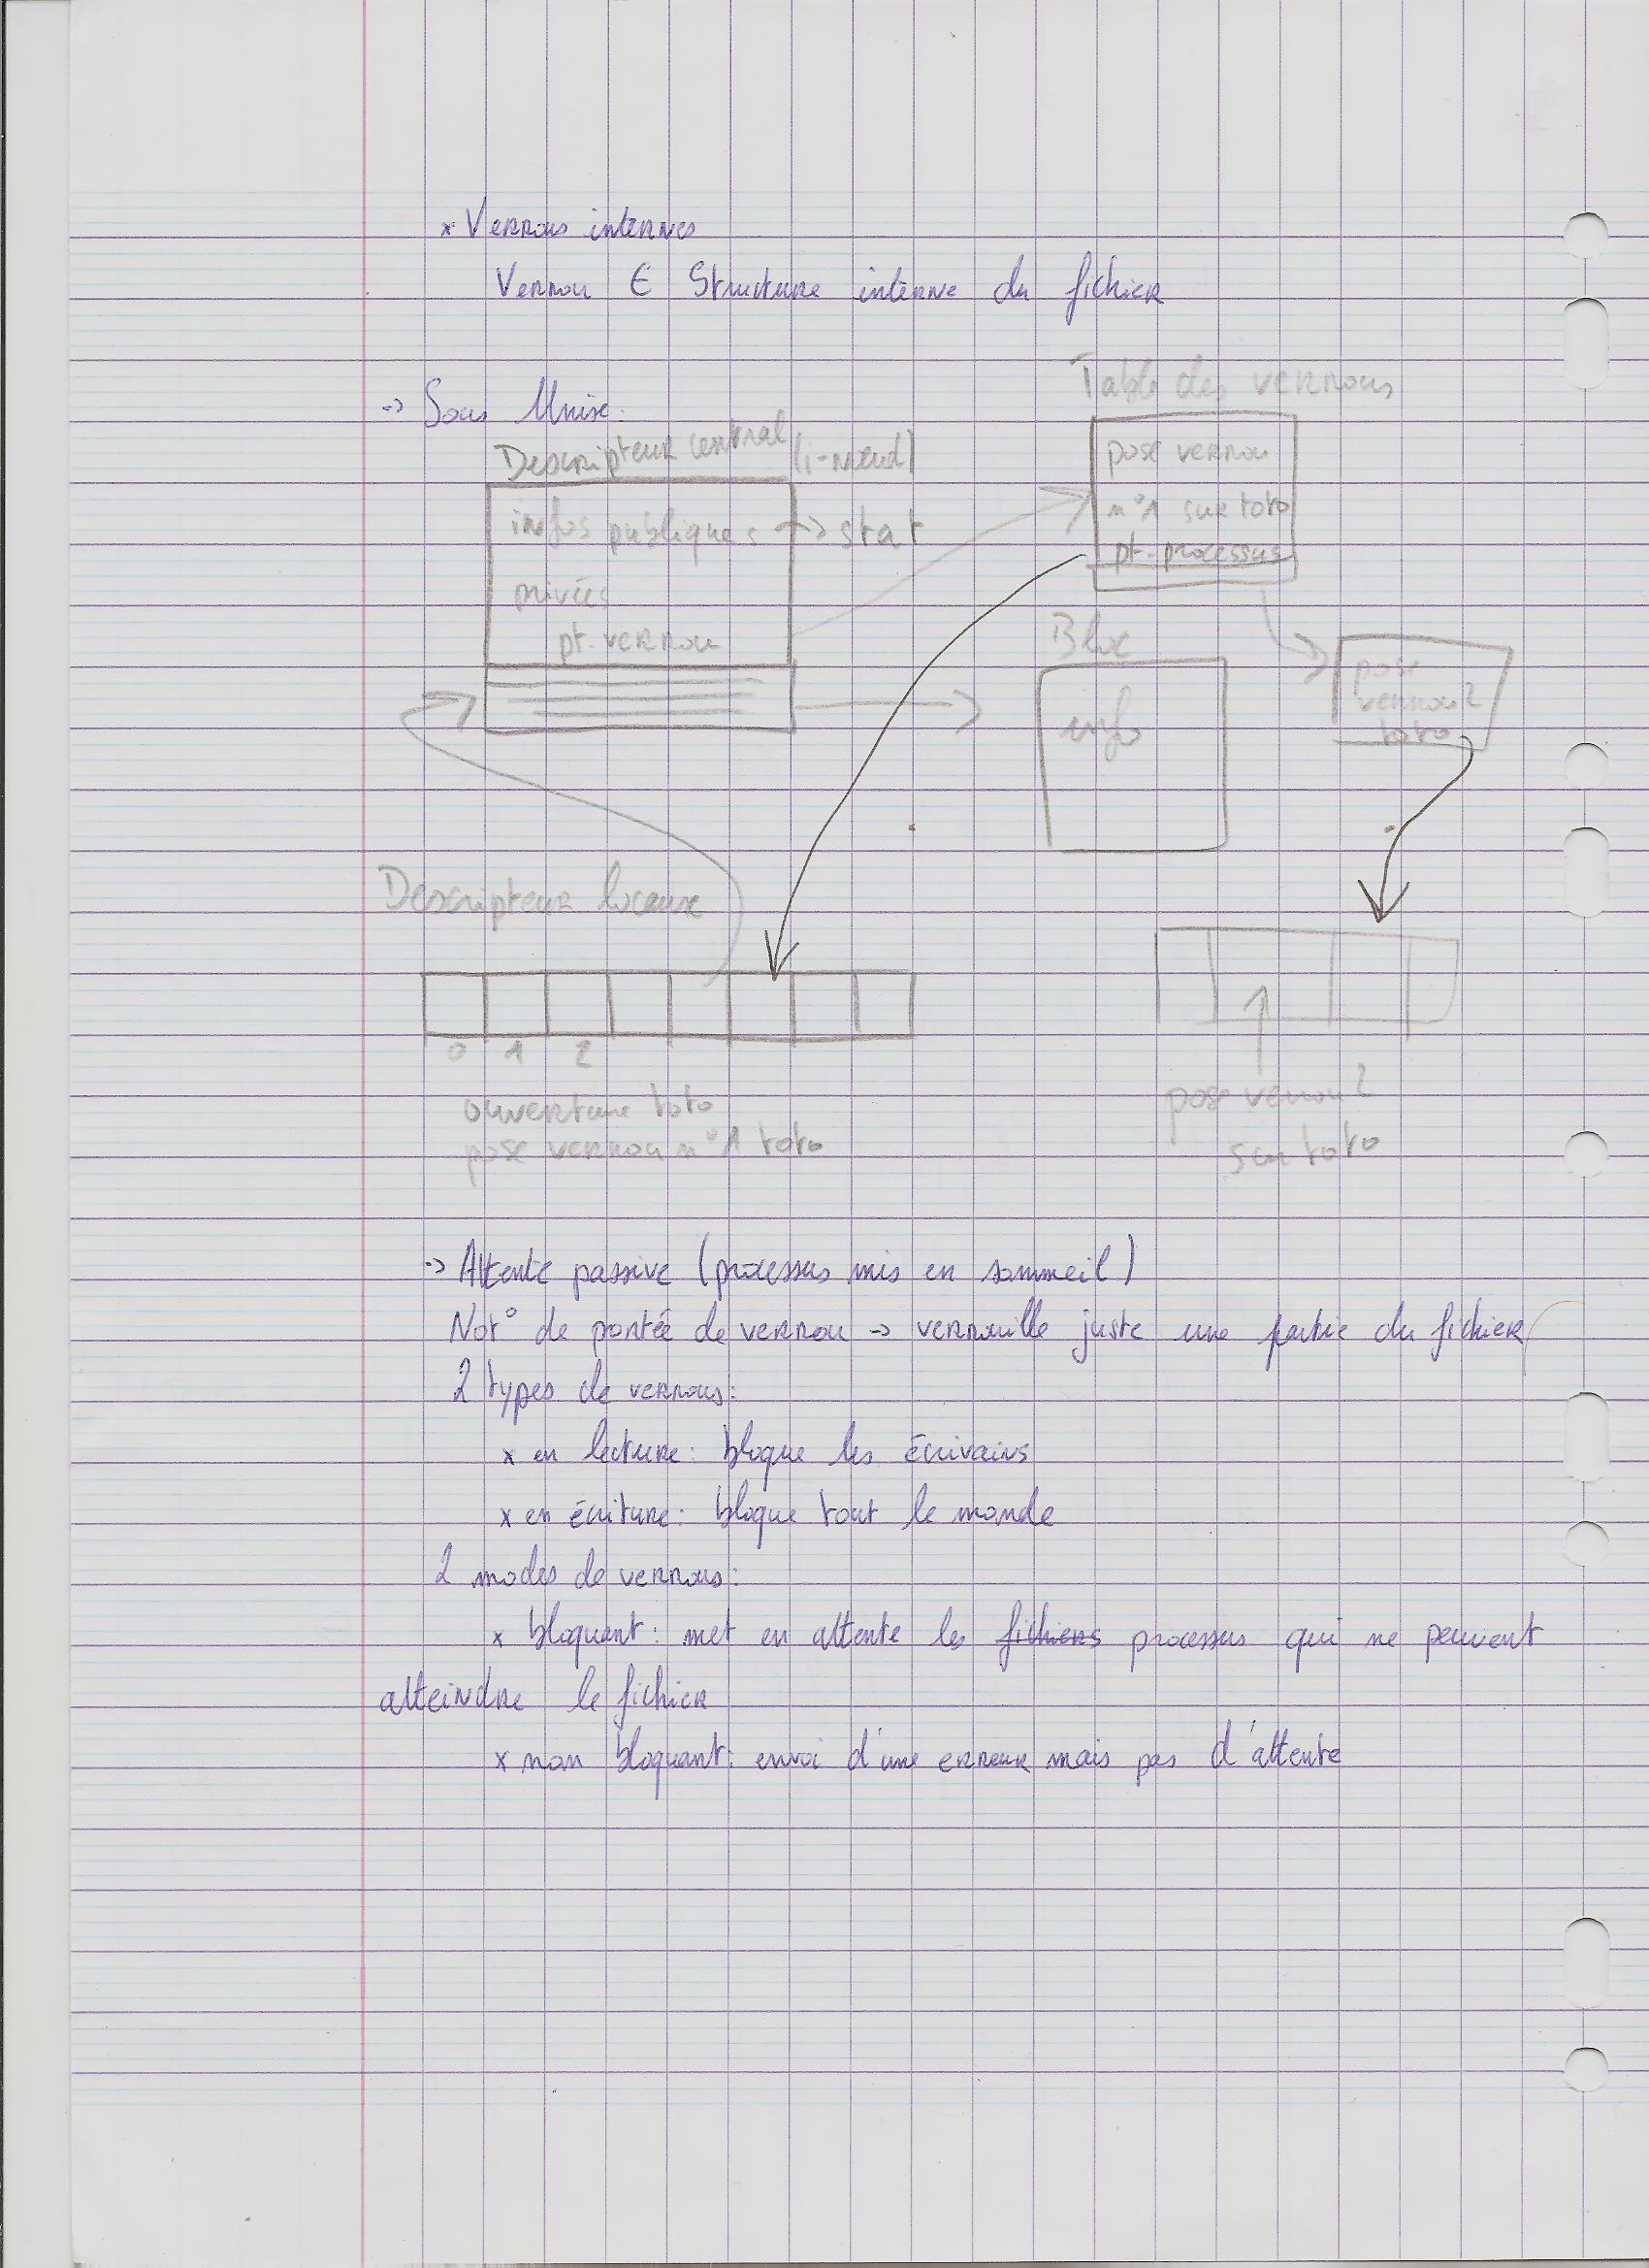 x Verrous internes
Verrou ∈ Structure interne du fichier
-> Sous Unix:
Table des verrous
Descripteur central (i-nœud)
pose verrou
n°1 sur toto
pt. processus
infos publiques -> stat
privées
pt. verrou
Bloc
info
pose
verrou 2
toto
Descripteur locaux
0 1 2
ouverture toto
pose verrou n°1 toto
pose verrou 2
sur toto
-> Attente passive (processus mis en sommeil)
Not° de portée de verrou -> verrouille juste une partie du fichier
2 types de verrous:
x en lecture: bloque les écrivains
x en écriture: bloque tout le monde
2 modes de verrous:
x bloquant: met en attente les fichiers processus qui ne peuvent
atteindre le fichier
x non bloquant: envoi d'une erreur mais pas d'attente